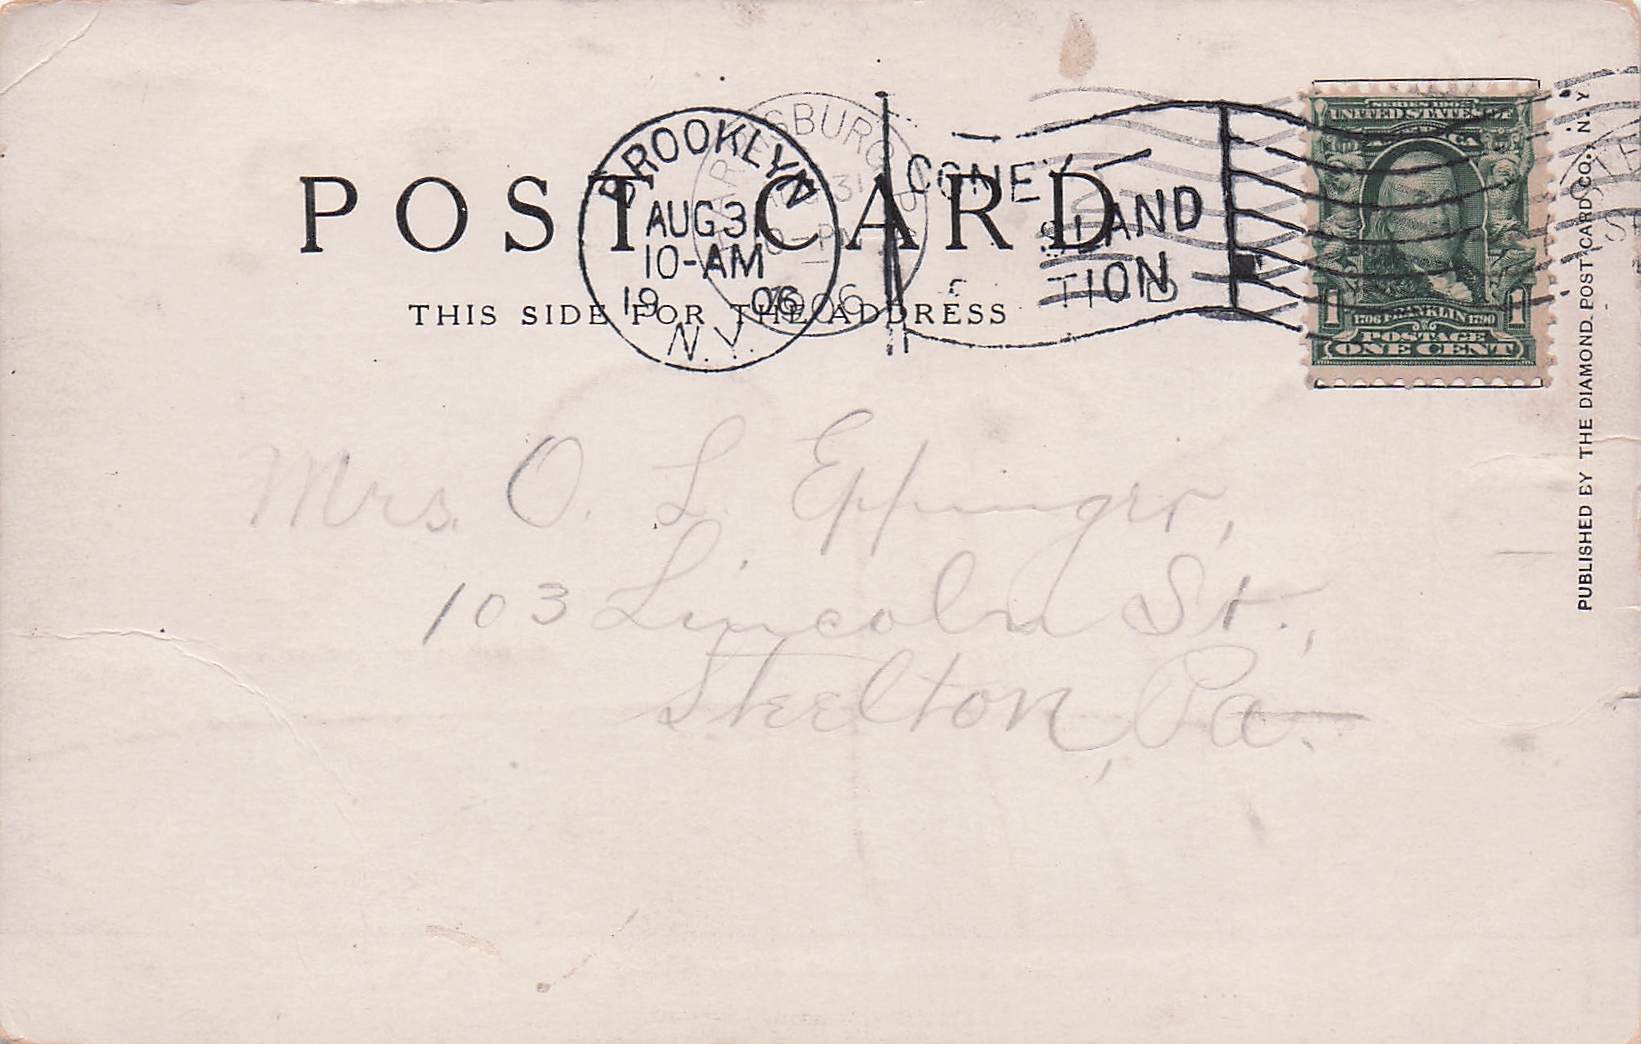 POST CARD
THIS SIDE FOR THE ADDRESS
BROOKLYN
AUG 31
10-AM
1906
N.Y.
CONEY
ISLAND
STATION
SERIES 1902
UNITED STATES OF AMERICA
1 1
1706 FRANKLIN 1790
POSTAGE
ONE CENT
PUBLISHED BY THE DIAMOND POST CARD CO., N.Y.
Mrs. O. L. Eppinger,
103 Lincoln St.,
Steelton, Pa.